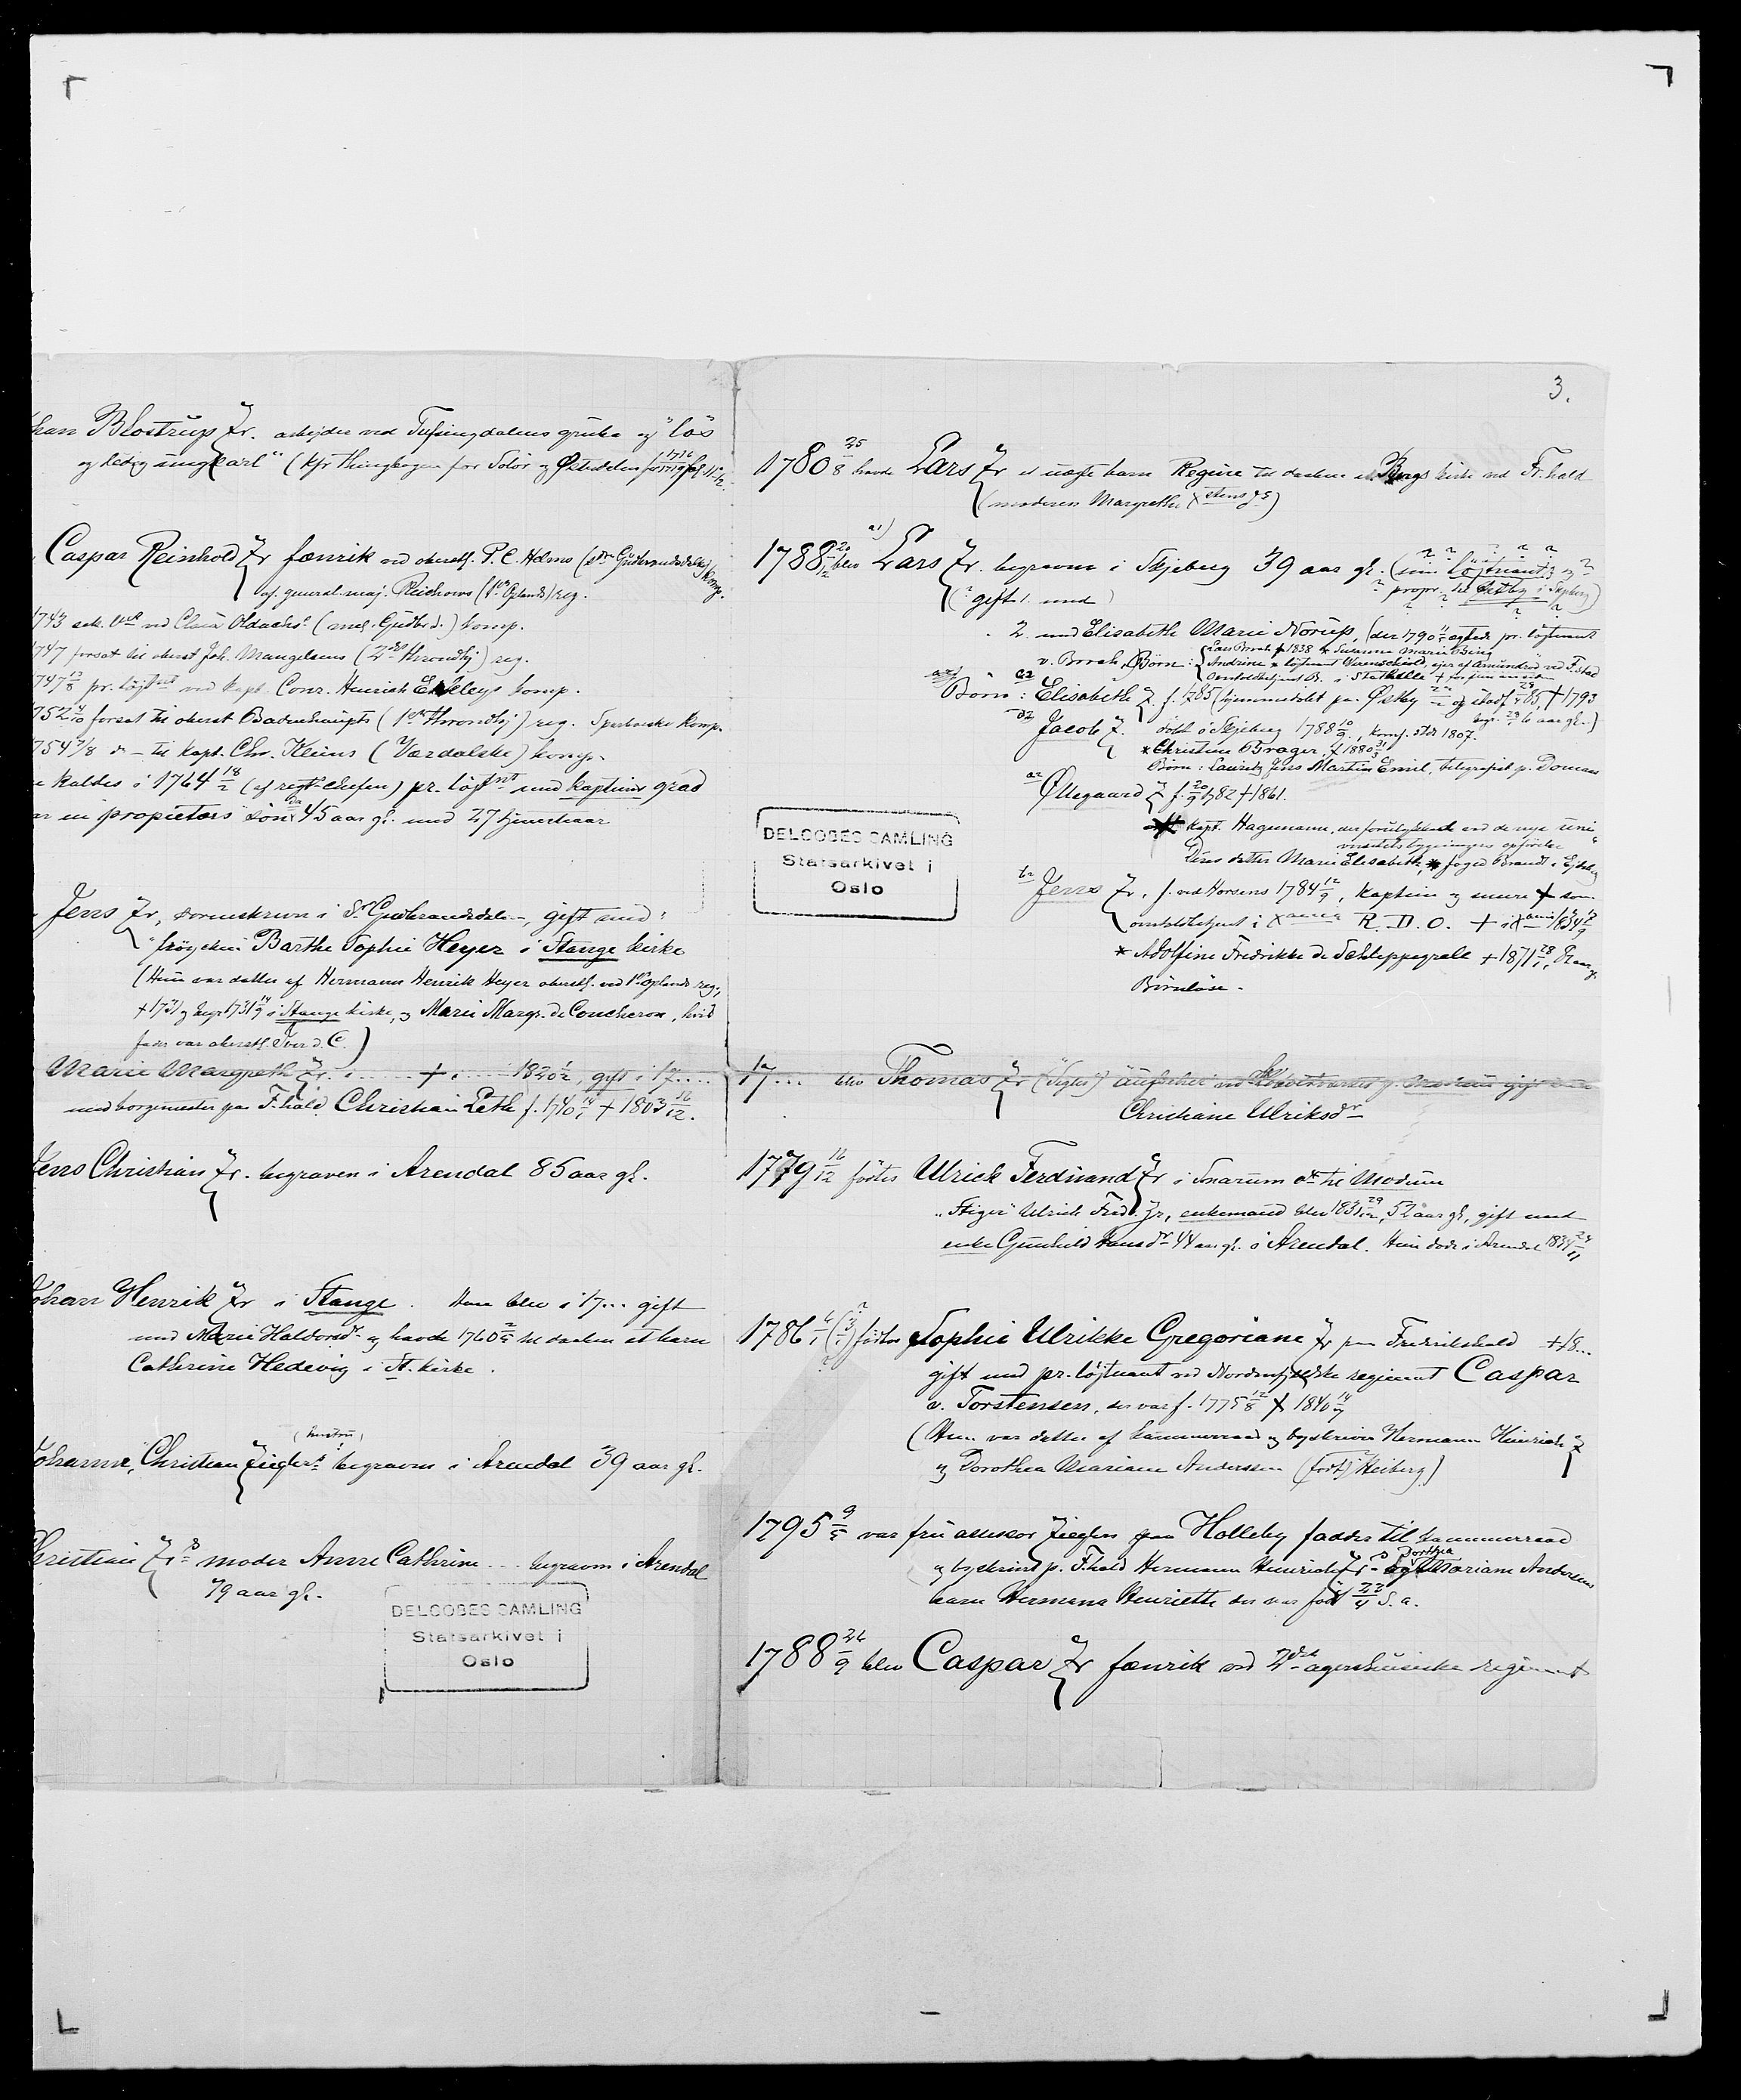 han Blostrup Zr. arbejder ved Tufsingdalens grube og "lös
og ledig ungkarl" (kfr thingbogen for Solör og Østerdalen for 1716
Caspar Reinhold Zr fænrik ved oberstl. P. C. Holms (Gudbrandsdalske) komp.
af general-maj. Reichows (1ste Oplands) reg.
1743 sek. ved Claus Oldachs (Gudbrd.) komp.
1747 forsat til oberst Joh. Mangelsens (2det Throndhj) reg.
1747 13/8 pr. löjt ved kapt. Conr. Henrich komp.
1752 forsat til oberst Badenhaupts (1ste Throndhj) reg. Sparboske komp.
1754 7/8 do til kapt. Chr. Kleins (Værdalske) komp.
kaldes i 1764 18/2 (af regts chefen) pr. löjtnt med kapteins grad
en propietærs sön 45 aar gl. med 27 tjenesteaar
Jens Zr, sorenskriver i Gudbrandsdalen, gift med:
fröyken Barthe Sophie Heyer i Stange kirke
(Hun var datter af Hermann Henrik Heyer oberstl. ved 1ste Oplands reg.,
+ 1731 og begr. 1731 i Stange kirke, og Marie Margr. de Coucheron, hvis
fader var oberstl. Iver d. C.)
Marie Margreth Zr. i ...... + i ...... 1820 1/2, gift i 17....
med borgemester paa F.hald Christian Leth f. 1740 14/1 + 1803 16/12.
Jens Christian Zr. begraven i Arendal 85 aar gl.
Johan Henrik Zr i Stange. Han blev i 17... gift
med Marie Halvorsdr og havde 1760 2/5 til daaben et barn
Cathrine Hedevig i St. kirke.
(hustru)
Johanne, Christian Zieglers begraven i Arendal 39 aar gl.
Christian Zrs moder Anne Cathrine .... begraven i Arendal
79 aar gl.
DELGOBES SAMLING
Statsarkivet i
Oslo
3.
1780 25/8 havde Lars Zr et uægte barn Regine til daaben i Bergs kirke ved Fr.hald
(moderen Margrethe)
1788 20/12 blev Lars Zr. begraven i Skjeberg 39 aar gl. (löjtnant og
propr. til Østby i Skjeberg)
(gift 1. med )
2. med Elisabeth Marie Norup, (der 1790 ægtede pr. löjtnant
v. Brock, Børn: Lars Brock + 1838 * Susanna Marie Bing
Andrine * löjtnant Warenschiold, ejer af Amundrød ved F.stad
Börn: Elisabeth Z. f. 1785 (hjemmedöbt paa Østby og stadf. 85, + 1793
begr. 6 aar gl.)
Jacob Z. döbt i Skjeberg 1788 10/9, komp. 1807.
* Christine Brager, + 1880 31/3
Børn: Lauritz Jens Martin Emil, telegrafist p. Domaas
Øllegaard Z f. 20/9 1782 + 1861.
Kapt. Hagemann, der forulykkede ved de nye uni
versitetsbygningers opförelse
Deres datter Marie Elisabeth, * foged Brandt i
Jens Zr, f. ved Horsens 1784 12/9, kaptein og senere
R. D. O. +
* Adolfine Fredrikke de Schleppegrell + 1871 28/1,
Börnlöse.
DELGOBES SAMLING
Statsarkivet i
Oslo
17... blev Thomas Zr ("Sigler") gift med
Christiane Ulriksdr
1779 16/12 födtes Ulrich Ferdinand Zr i Snarum til Modum
"Stiger" Ulrich Fred. Zr, enkemand blev 1831 29/12, 52 aar gl, gift med
enke Gunhild Hansdr 44 aar gl. i Arendal. Hun døde i Arendal 1834 24/11
1786 födtes Sophie Ulrikke Gregoriane Zr paa Fredrikshald + 18...
gift med pr. löjtnant ved Nordenfjeldske regiment Caspar
v. Torstensen, der var f. 1775 12/8 + 1840 14/7
(Hun var datter af kammerraad og byskriver Hermann Heinrich Z
og Dorothea Mariane Anderssen (födt Heiberg)
1795 9/5 var fru assessor Zieglers paa Holleby fadder til kammerraad
og byskriver p. F.hald Hermann Heinrich Zrs og Dorthea Mariane Andersens
barn Hermana Henriette der var föd 22/4 s. a.
1788 26/9 blev Caspar Zr fænrik ved 2det agershusiske regiment